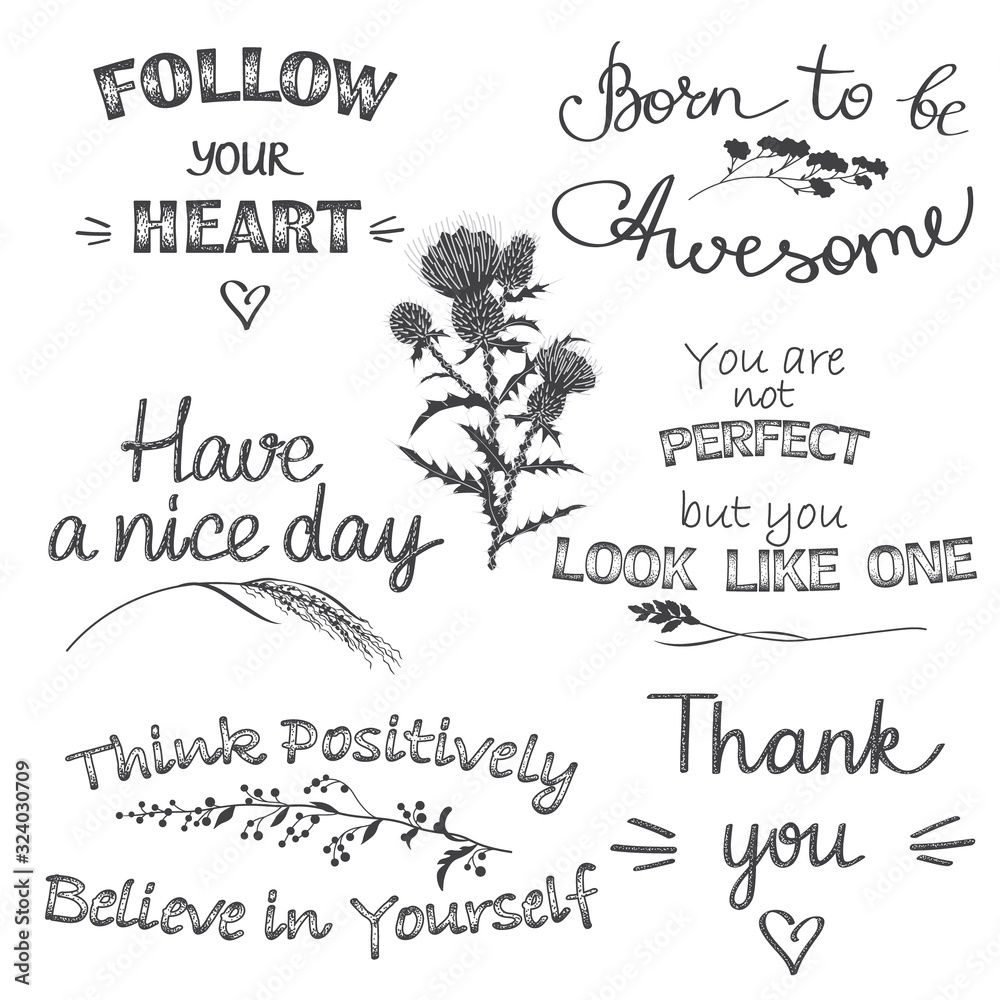 FOLLOW
YOUR
HEART
Born to be
Awesome
Have
a nice day
You are
not
PERFECT
but you
LOOK LIKE ONE
Think Positively
Believe in Yourself
Thank
you
Adobe Stock | #324030709